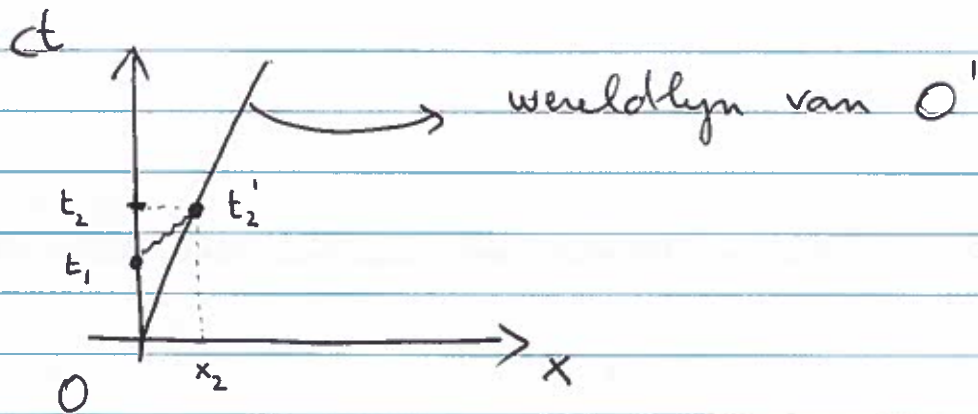 ct
wereldlyn van O'
t₂
t₂'
t₁
x₂
x
O